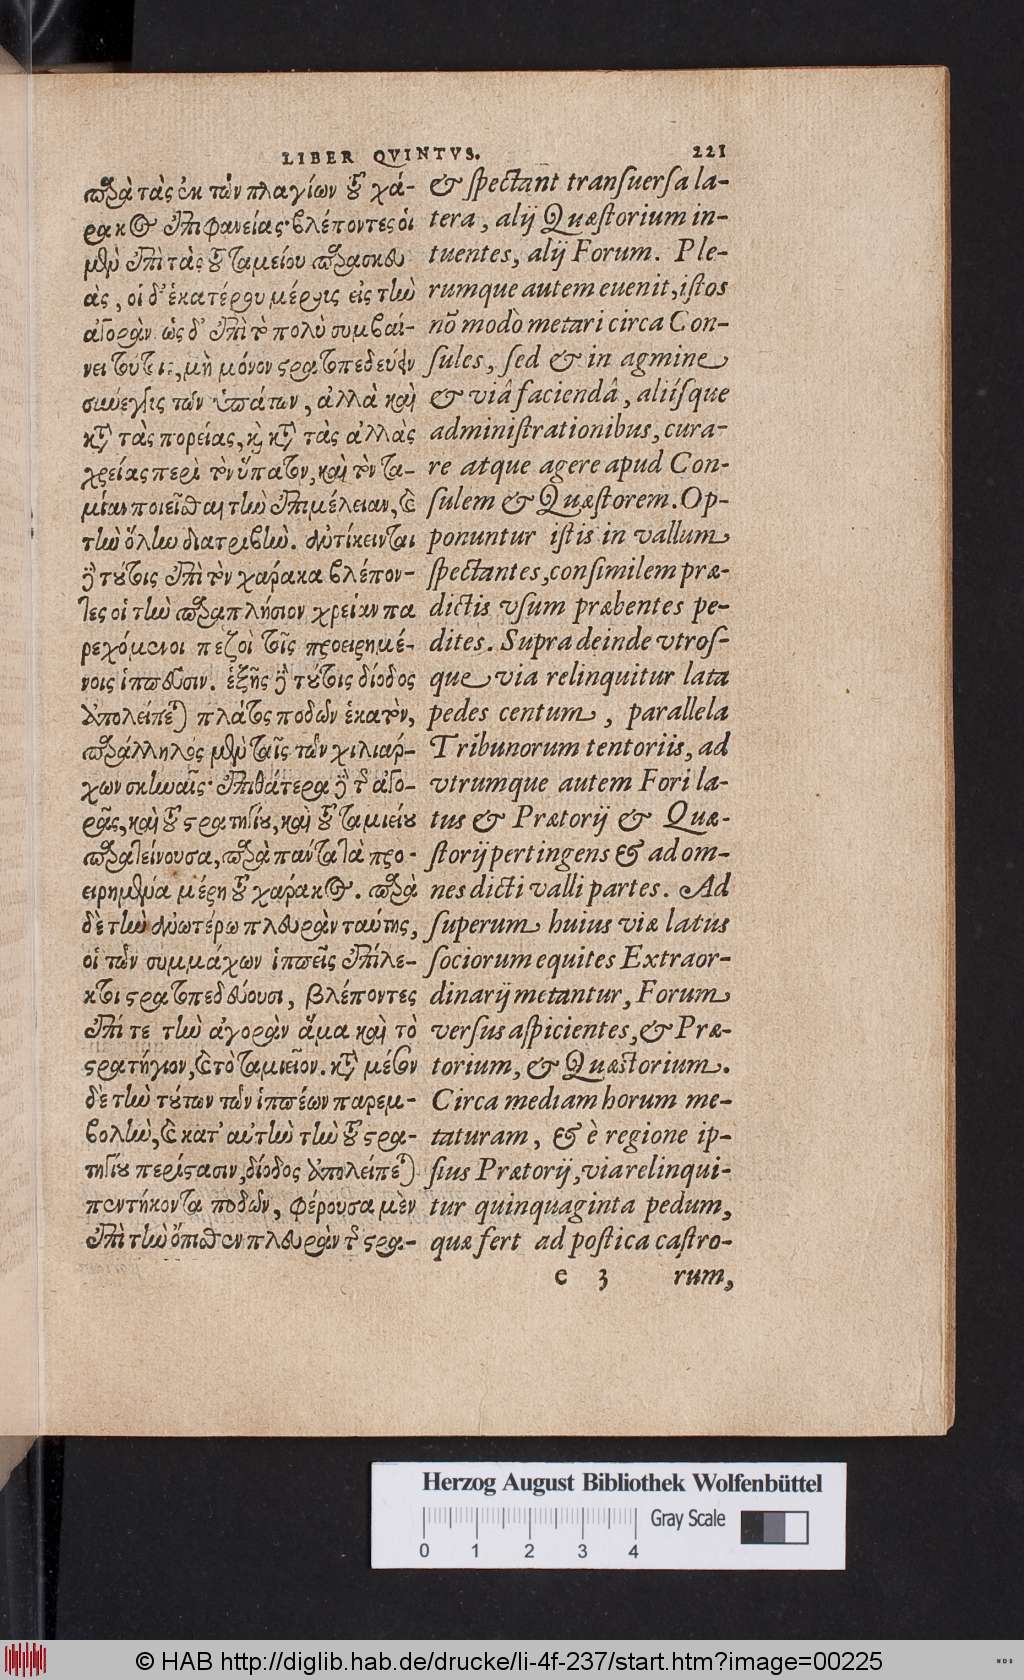 LIBER QVINTVS. 221
παρὰ τὰς ἐκ τῶν πλαγίων τοῦ χά-
ρακος ἐπιφανείας· βλέποντες οἱ
μὲν ἐπὶ τὰς τοῦ ταμείου παρασκευ
ὰς, οἱ δ' ἑκατέρου μέρους εἰς τὴν
ἀγορὰν. ὡς δ' ἐπὶ τὸ πολὺ συμβαί-
νει τούτοις, μὴ μόνον στρατοπεδεύειν
σύνεγγυς τῶν ὑπάτων, ἀλλὰ καὶ
κατὰ τὰς πορείας, καὶ κατὰ τὰς ἀλλὰς
χρείας περὶ τὸν ὕπατον, καὶ τὸν τα-
μίαν ποιεῖσθαι τὴν ἐπιμέλειαν, καὶ
τὴν ὅλην διατριβὴν. ἀντίκεινται
δὲ τούτοις ἐπὶ τὸν χάρακα βλέπον-
τες οἱ τὴν παραπλήσιον χρείαν πα
ρεχόμενοι πεζοὶ τοῖς προειρημέ-
νοις ἱππεῦσιν. ἑξῆς δὲ τούτοις δίοδος
ἀπολείπεται πλάτος ποδῶν ἑκατὸν,
παράλληλος μὲν ταῖς τῶν χιλιάρ-
χων σκηναῖς· ἐπιθάτερα δὲ τῆς ἀγο-
ρᾶς, καὶ τοῦ στρατηγίου, καὶ τοῦ ταμιείου
παρατείνουσα, παρὰ πάντα τὰ προ-
ειρημένα μέρη τοῦ χάρακος. παρὰ
δὲ τὴν ἀνωτέρω πλευρὰν ταύτης,
οἱ τῶν συμμάχων ἱππεῖς ἐπίλε-
κτοι στρατοπεδεύουσι, βλέποντες
ἐπί τε τὴν ἀγορὰν ἅμα καὶ τὸ
στρατήγιον, καὶ τὸ ταμιεῖον. κατὰ μέσον
δὲ τὴν τούτων τῶν ἱππέων παρεμ-
βολὴν, καὶ κατ' αὐτὴν τὴν τοῦ στρα-
τηγίου περίστασιν, δίοδος ἀπολείπεται
πεντήκοντα ποδῶν, φέρουσα μὲν
ἐπὶ τὴν ὄπισθεν πλευρὰν τῆς στρα-
& spectant transuersa la-
tera, alij Quæstorium in-
tuentes, alij Forum. Ple-
rumque autem euenit, istos
nō modò metari circa Con-
sules, sed & in agmine
& viâ faciendâ, aliísque
administrationibus, cura-
re atque agere apud Con-
sulem & Quæstorem. Op-
ponuntur istis in vallum
spectantes, consimilem præ-
dictis vsum præbentes pe-
dites. Supra deinde vtros-
que via relinquitur lata
pedes centum, parallela
Tribunorum tentoriis, ad
vtrumque autem Fori la-
tus & Prætorij & Quæ-
storij pertingens & ad om-
nes dicti valli partes. Ad
superum huius viæ latus
sociorum equites Extraor-
dinarij metantur, Forum
versus aspicientes, & Præ-
torium, & Quæstorium.
Circa mediam horum me-
taturam, & è regione ip-
sius Prætorij, via relinqui-
tur quinquaginta pedum,
quæ fert ad postica castro-
e 3 rum,
Herzog August Bibliothek Wolfenbüttel
Gray Scale
0 1 2 3 4
© HAB http://diglib.hab.de/drucke/li-4f-237/start.htm?image=00225